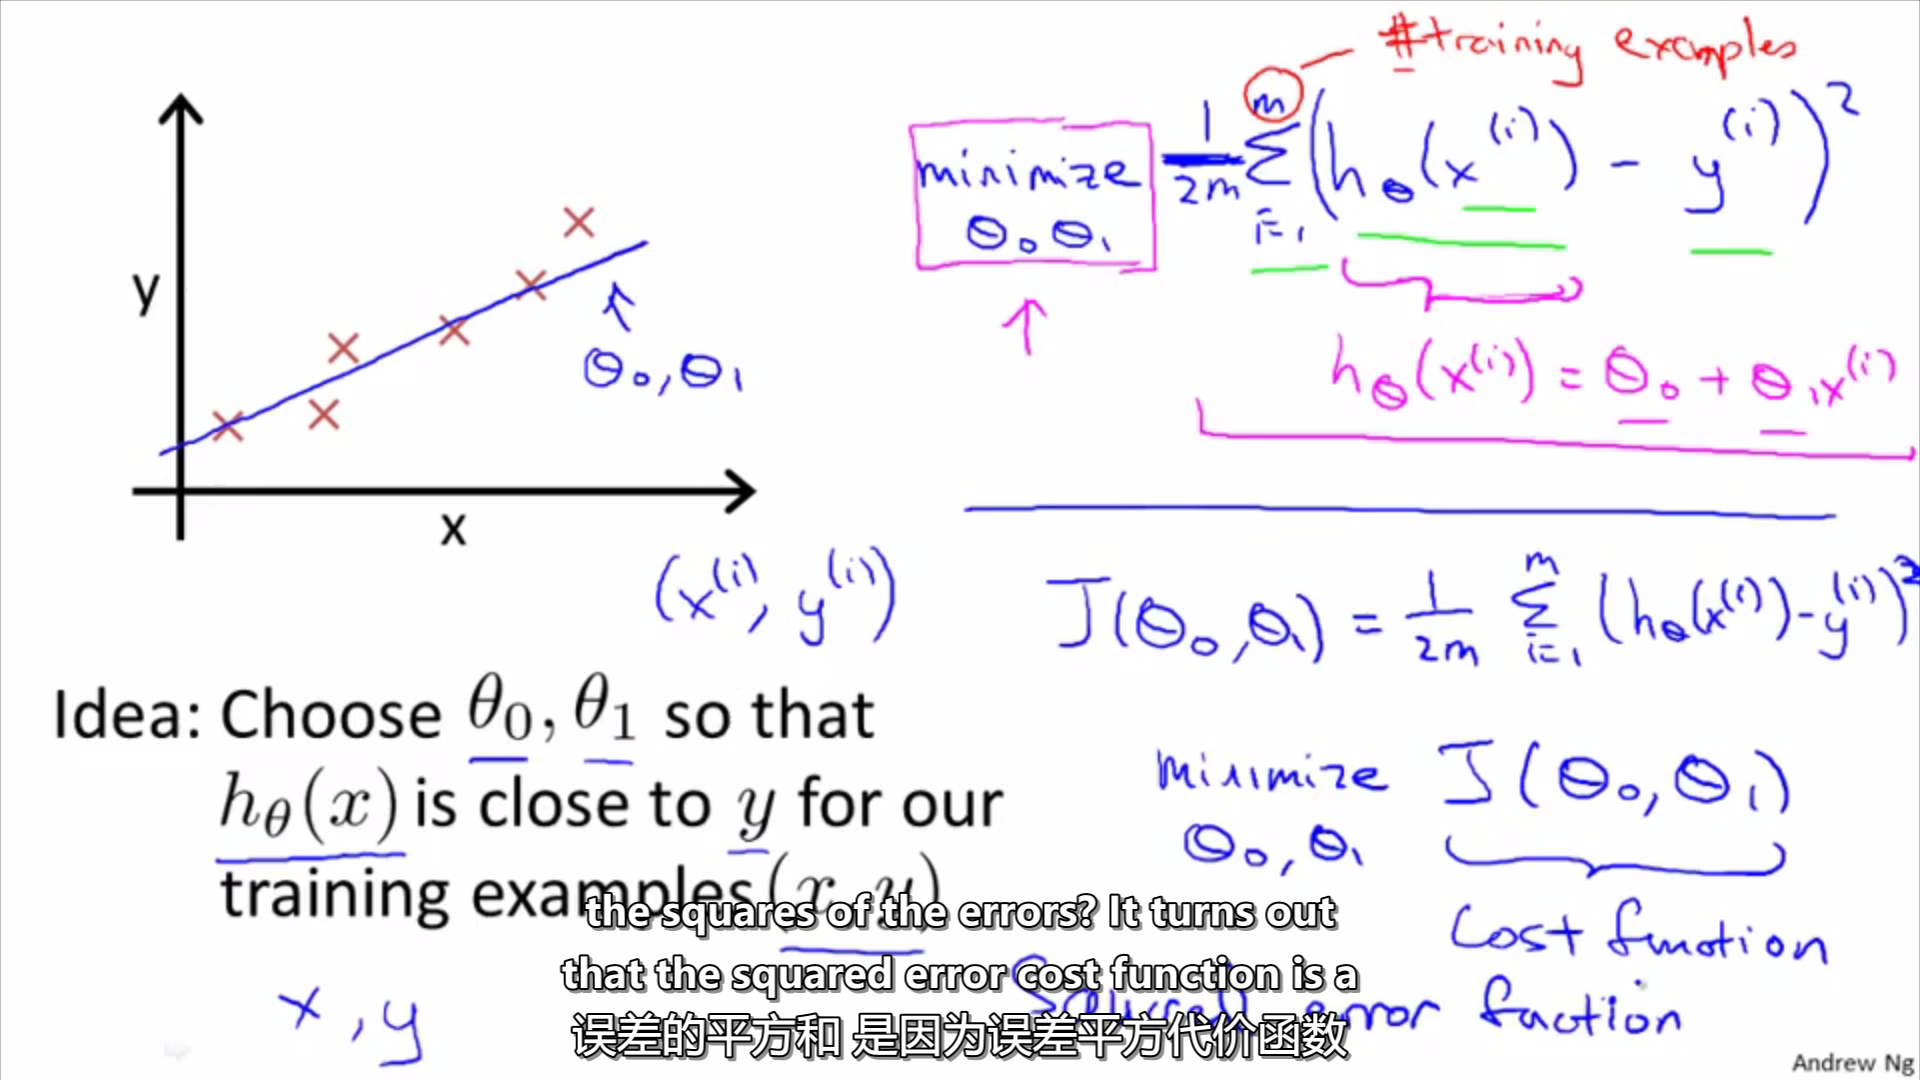 #training examples
minimize θ₀ θ₁ 1/2m Σ i=1 m (hθ(x⁽ⁱ⁾) - y⁽ⁱ⁾)²
y
θ₀, θ₁
hθ(x⁽ⁱ⁾) = θ₀ + θ₁x⁽ⁱ⁾
x
(x⁽ⁱ⁾, y⁽ⁱ⁾)
J(θ₀,θ₁) = 1/2m Σ i=1 m (hθ(x⁽ⁱ⁾)-y⁽ⁱ⁾)²
Idea: Choose θ₀, θ₁ so that
hθ(x) is close to y for our
training examples (x, y)
minimize J(θ₀, θ₁)
θ₀, θ₁
Cost function
Squared error function
x, y
the squares of the errors? It turns out
that the squared error cost function is a
误差的平方和 是因为误差平方代价函数
Andrew Ng